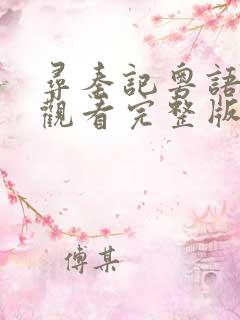 尋秦記粵語
觀看完整版
傅某